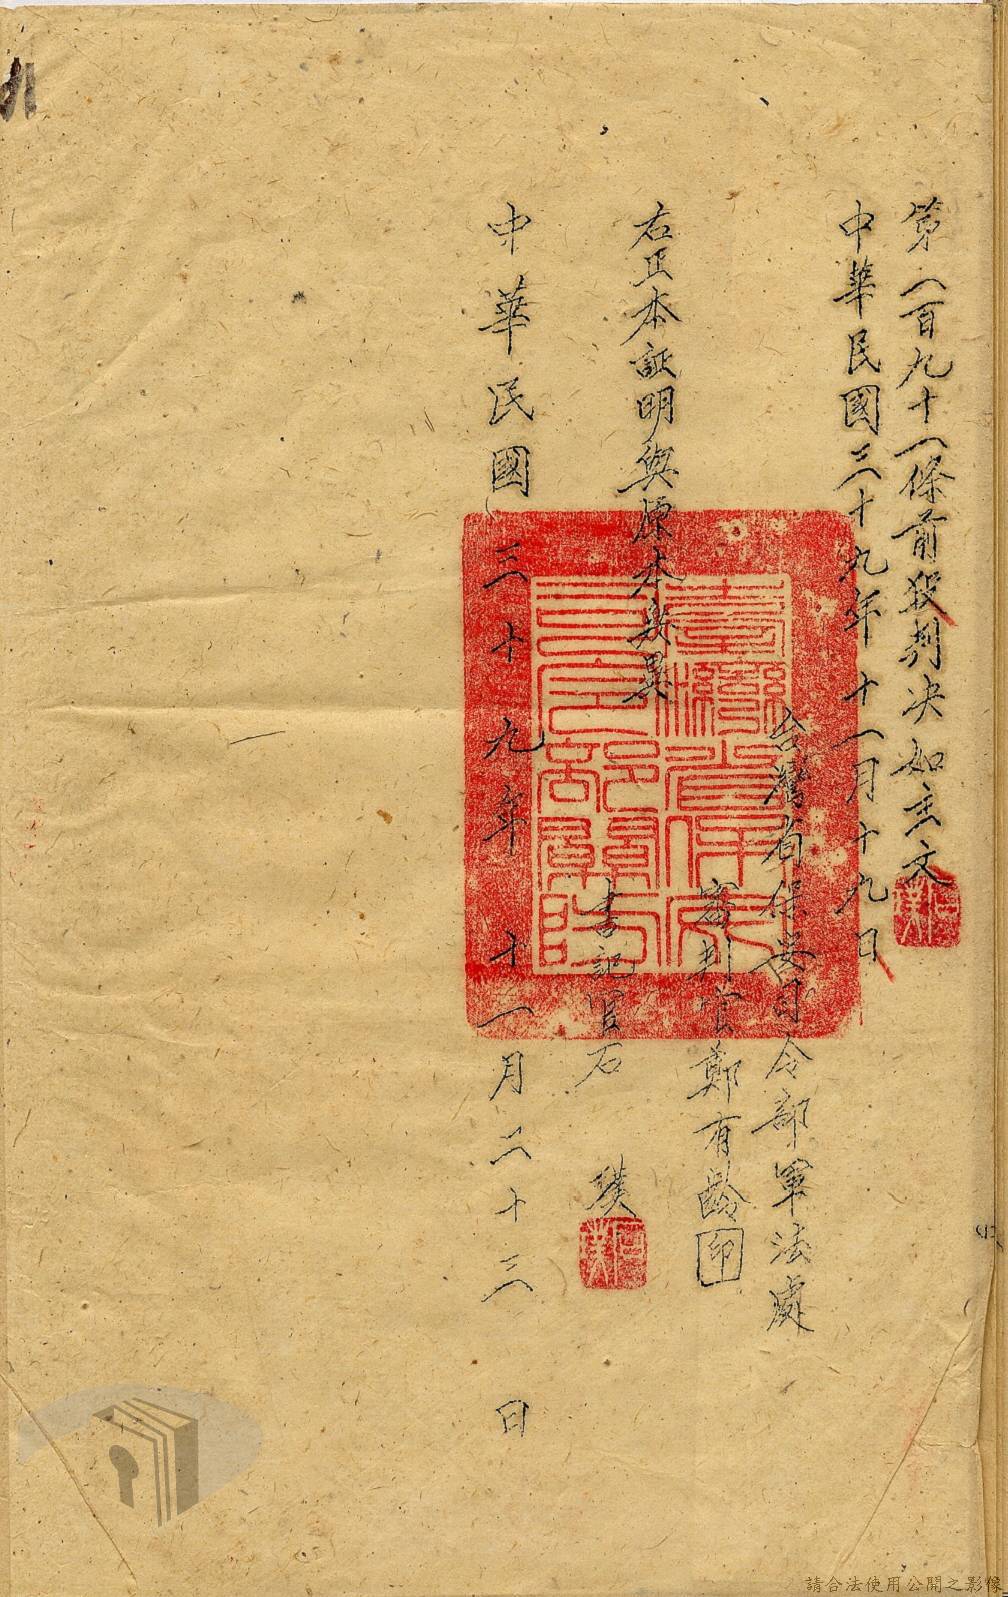 第二百九十一條前段判決如主文
中華民國三十九年十一月十九日
台灣省保安司令部軍法處
審判官鄭有齡印
右正本証明與原本無異
書記官石
中華民國三十九年十一月二十三日
臺灣省保安司令部軍法
請合法使用公開之影像